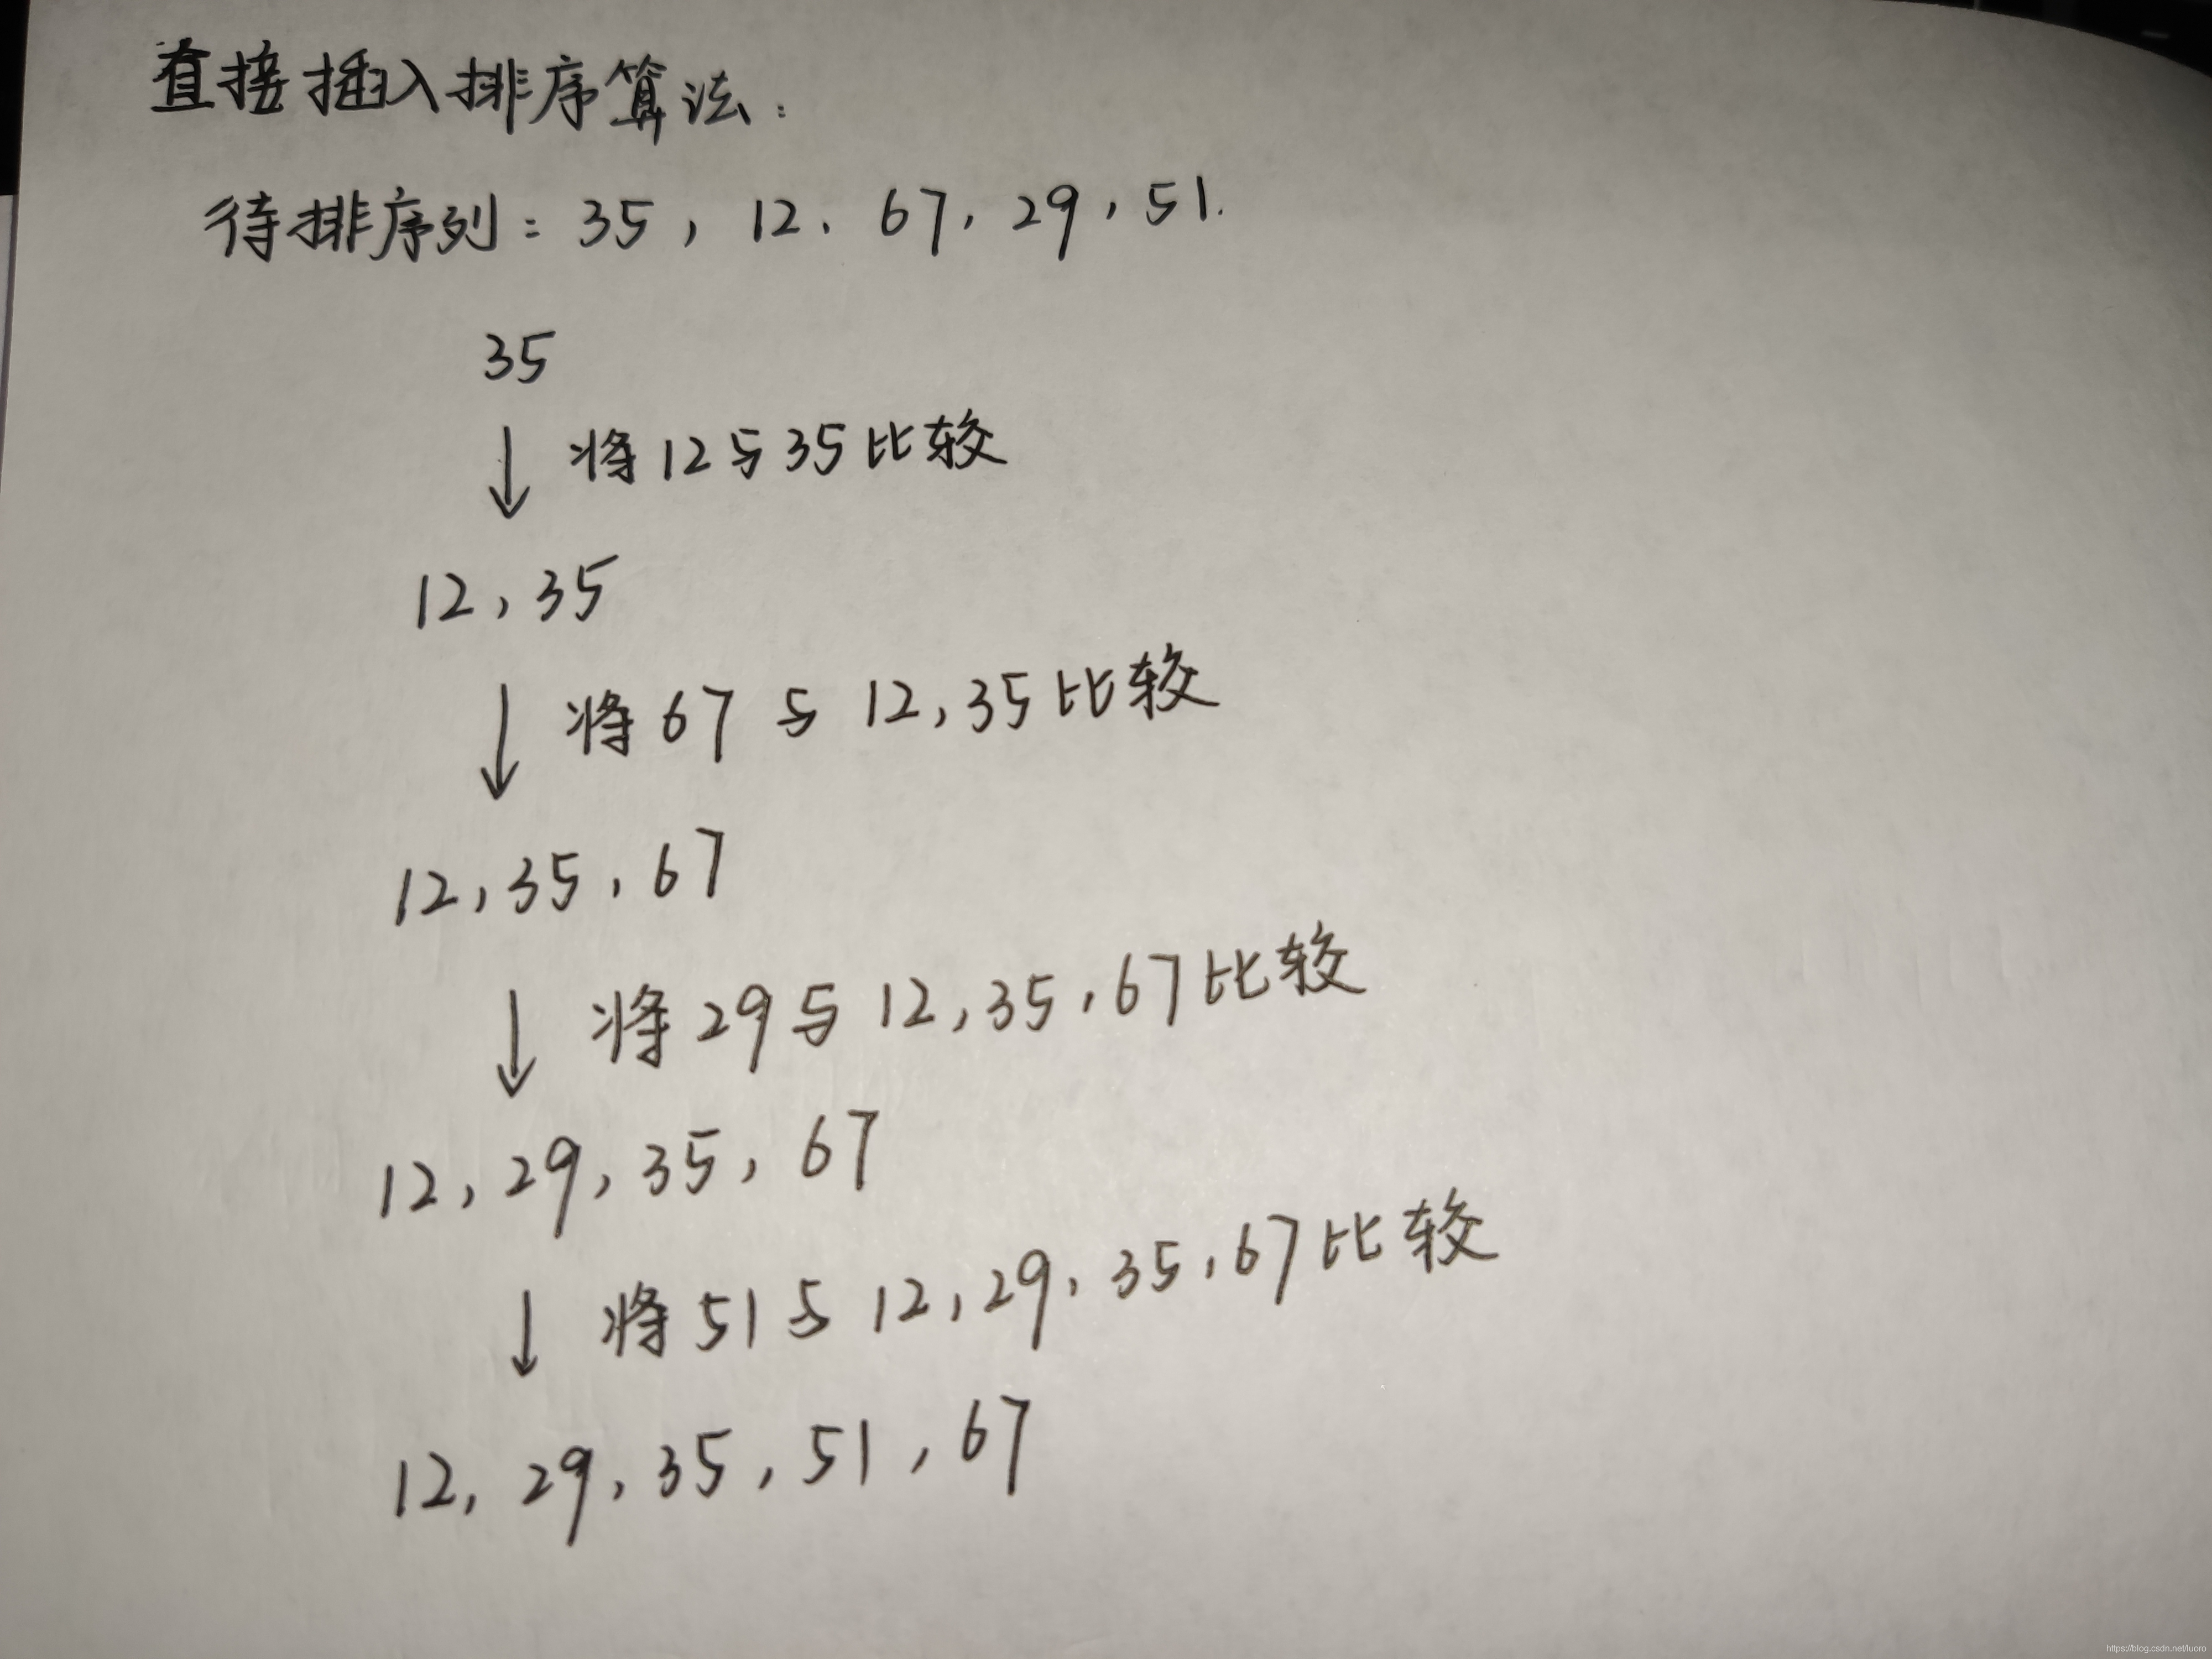 直接插入排序算法:
待排序列: 35, 12, 67, 29, 51.
35
将12与35比较
12, 35
将67与12,35比较
12, 35, 67
将29与12,35,67比较
12, 29, 35, 67
将51与12,29,35,67比较
12, 29, 35, 51, 67
https://blog.csdn.net/luoro